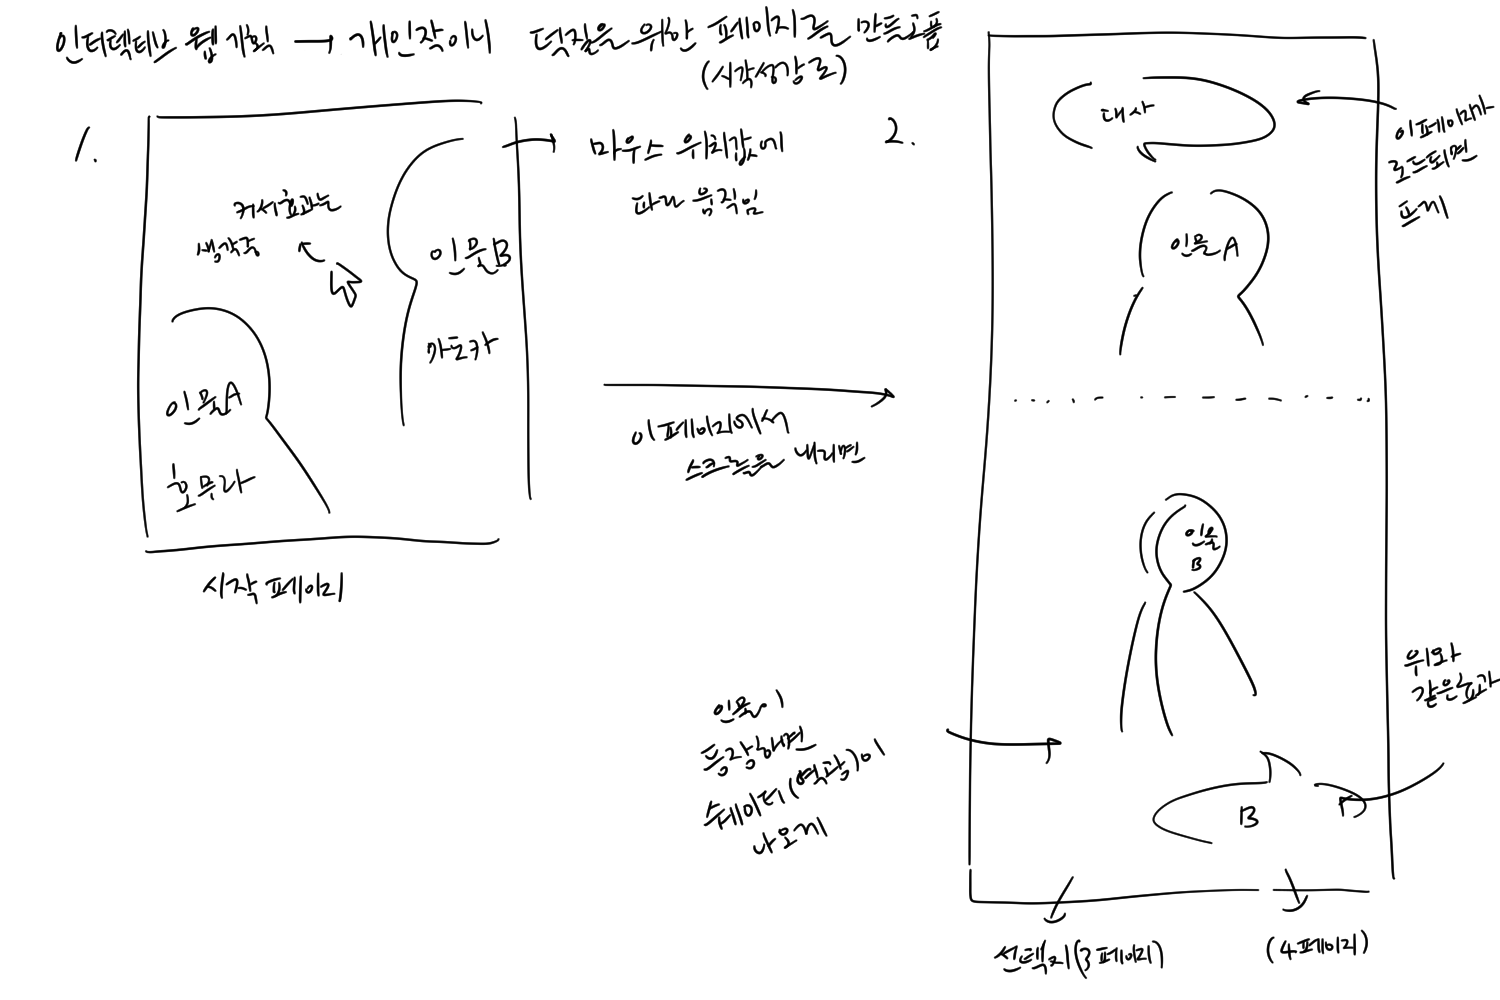 인터렉티브 웹 기획 → 개인작이니 덕질을 위한 페이지를 만들고픔
(시각성강조)
1.
커서효과는
생각중
인물B
마도카
인물A
호무라
시작 페이지
마우스 위치값에
따라 움직임
이 페이지에서
스크롤을 내리면
2.
대사
이 페이지가
로드되면
뜨게
인물A
인물
B
인물이
등장하면
쉐이더(역광)이
나오게
위와
같은효과
B
선택지(3페이지)
(4페이지)